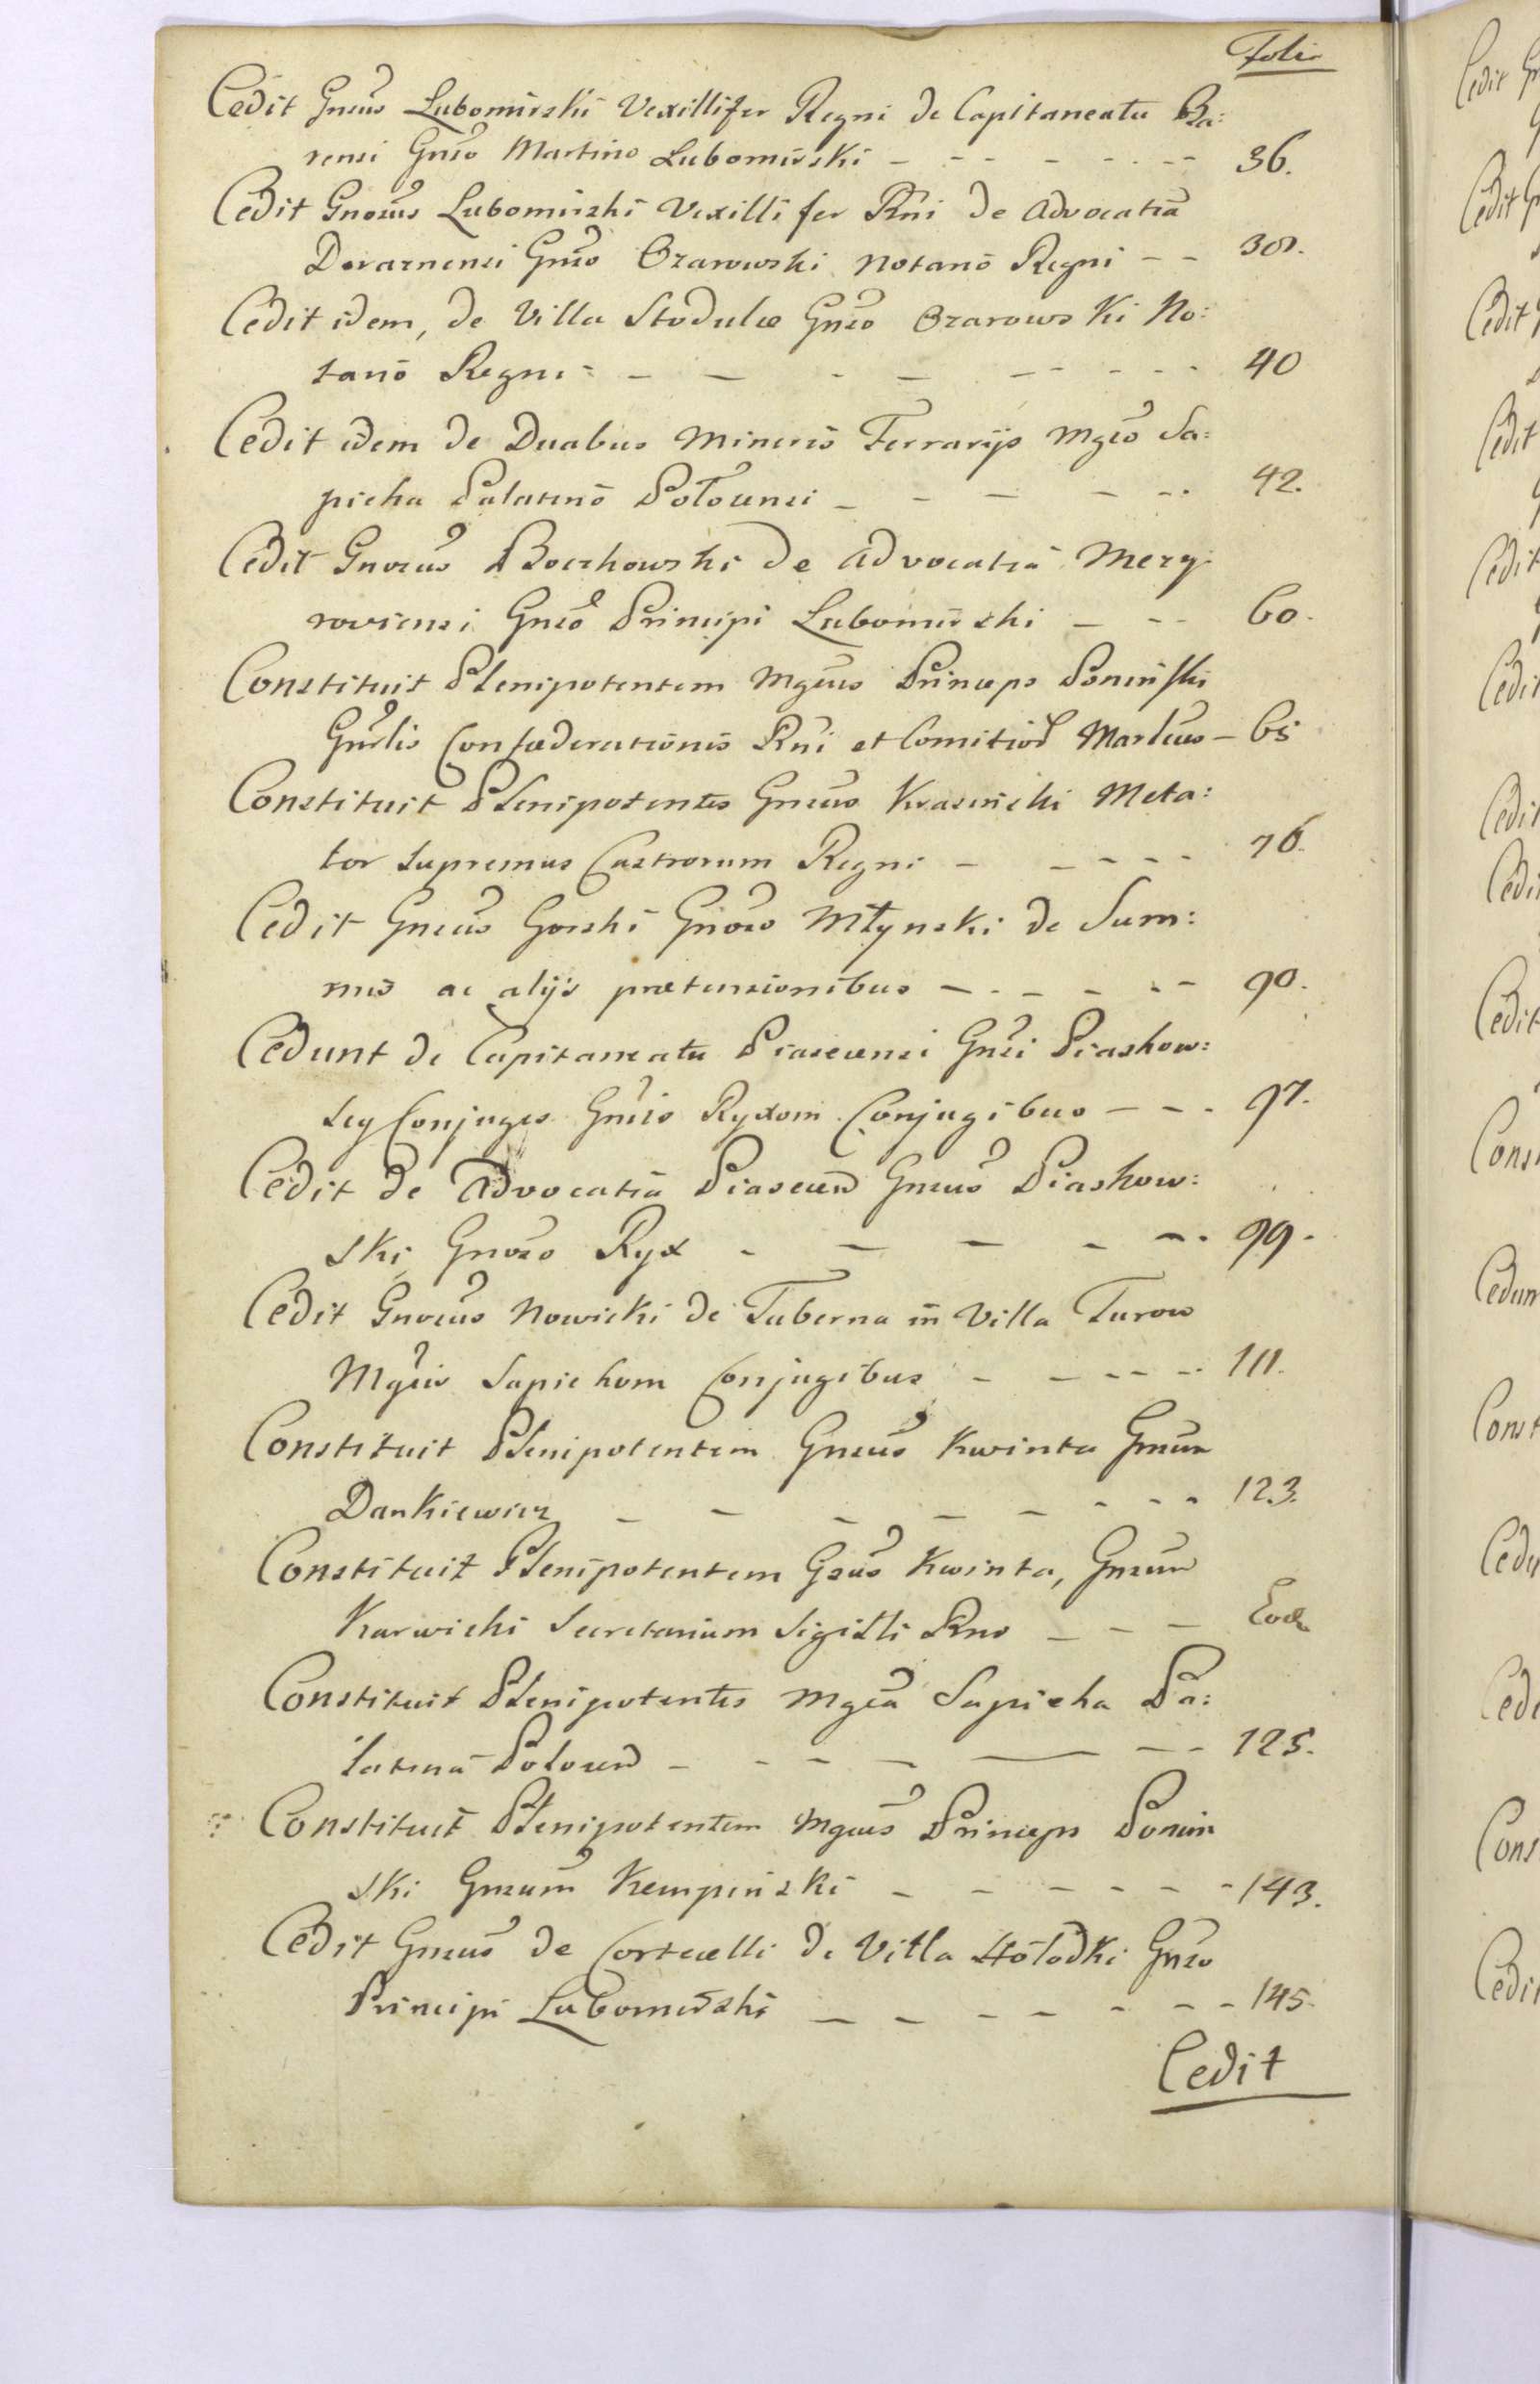 Folio
Cedit Gnsus Lubomirski Vexillifer Regni de Capitaneatu Ba:
rensi Gnso Martino Lubomirski - - - - - - - 36.
Cedit Gnosus Lubomirski Vexillifer Rni de Advocatia
Deraznensi Gnso Ozarowski Notario Regni - - 38.
Cedit idem, de Villa Stodulce Gnso Ozarowski No:
tario Regni - - - - - - - - - 40
Cedit idem de Duabus Mineris Ferrarijs Mgco Sa:
pieha Palatino Polocensi - - - - - - 42.
Cedit Gnosus Boczkowski de Advocatia Mezy
roviensi Gnso Principi Lubomirski - - - 60.
Constituit Plenipotentem Mgcus Princeps Poninski
Gnrlis Confæderationis Rni et Comitior Marlcus - 65
Constituit Plenipotentes Gnsus Krasinski Meta:
tor Supremus Castrorum Regni - - - - - 76.
Cedit Gnsus Gorski Gnoso Młynski de Sum:
mis ac alijs prætensionibus - - - - - - 90.
Cedunt de Capitaneatu Piasecensi Gnsi Piaskow:
scy Conjuges Gnsis Ryxom Conjugibus - - - 97.
Cedit de Advocatia Piasecen Gnsus Piaskow:
ski Gnoso Ryx - - - - - - 99.
Cedit Gnosus Nowicki de Taberna in Villa Turow
Mgcis Sapiehom Conjugibus - - - - - 111.
Constituit Plenipotentem Gnsus Kwinta Gnsum
Dankiewicz - - - - - - - - 123.
Constituit Plenipotentem Gsus Kwinta, Gnsum
Karwicki Secretarium Sigilli Rni - - - Eod
Constituit Plenipotentes Mgca Sapieha Pa:
latina Polocen - - - - - - - 125.
Constituit Plenipotentem Mgcus Princeps Ponin
ski Gnsum Kempinski - - - - - - - 143.
Cedit Gnsus de Corticelli de Villa Hołodki Gnso
Principi Lubomirski - - - - - - - 145.
Cedit